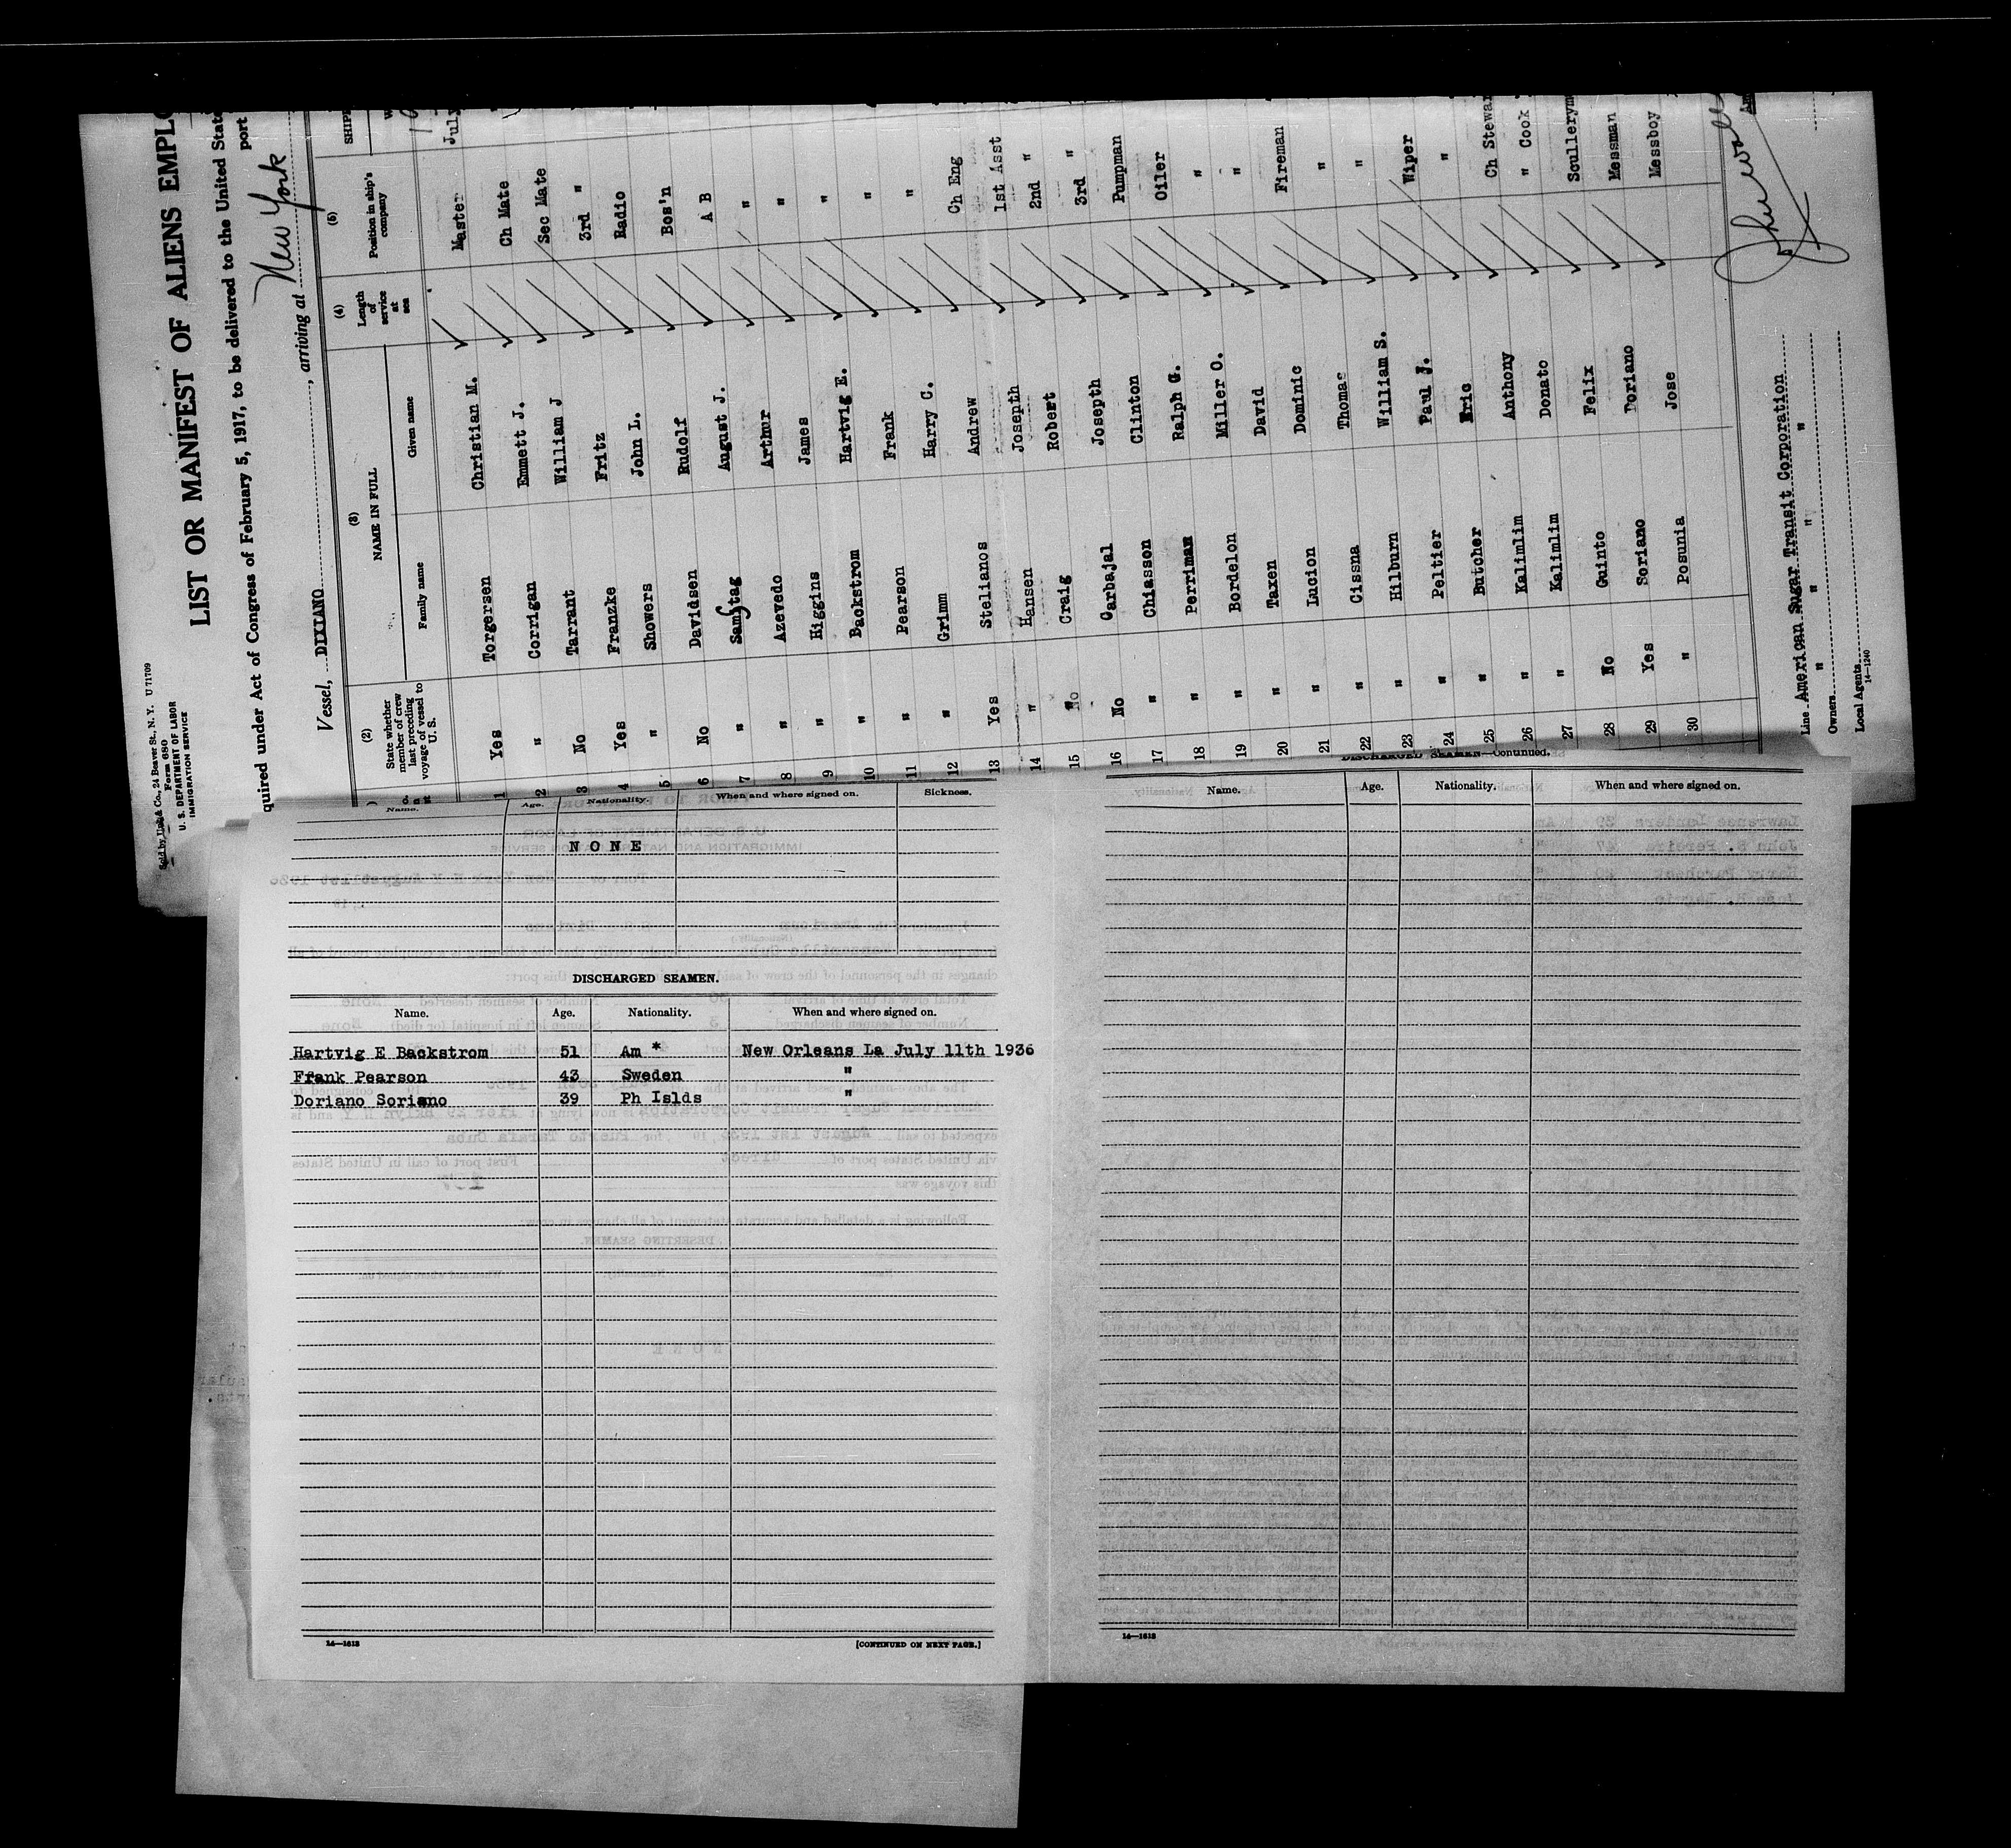 Sold by Unz & Co., 24 Beaver St., N. Y. U 71709
Form 680
U. S. DEPARTMENT OF LABOR
IMMIGRATION SERVICE
LIST OR MANIFEST OF ALIENS EMPLO
quired under Act of Congress of February 5, 1917, to be delivered to the United State
port
Vessel, DIXIANO, arriving at New York
(2) (3) (4) (5)
State whether member of crew last preceding voyage of vessel to U. S. NAME IN FULL Length of service at sea Position in ship's company SHIPP
Family name Given name
1 Yes Torgersen Christian M. Master July
2 " Corrigan Emmett J. Ch Mate
3 No Tarrant William J Sec Mate
4 Yes Franzke Fritz 3rd "
5 " Showers John L. Radio
6 No Davidsen Rudolf Bos'n
7 " Samstag August J. A B
8 " Azevedo Arthur "
9 " Higgins James "
10 " Backstrom Hartvig E. "
11 " Pearson Frank "
12 " Grimm Harry C. "
13 Yes Stelianos Andrew Ch Eng
14 " Hansen Josepth 1st Asst
15 No Craig Robert 2nd "
16 No Carbajal Josepth 3rd "
17 " Chiasson Clinton Pumpman
18 " Perriman Ralph G. Oiler
19 " Bordelon Miller O. "
20 " Taxen David "
21 " Lucion Dominic Fireman
22 " Cissna Thomas "
23 " Hilburn William S. "
24 " Peltier Paul J. Wiper
25 " Butcher Eric "
26 " Kalimlim Anthony Ch Stewar
27 " Kalimlim Donato " Cook
28 No Guinto Felix Scullerym
29 Yes Soriano Doriano Messman
30 " Posunia Jose Messboy
Line American Sugar Transit Corporation
Owners " " " "
Local Agents
14—1240
Name. Age. Nationality. When and where signed on. Sickness.
NONE
DISCHARGED SEAMEN.
Name. Age. Nationality. When and where signed on.
Hartvig E Backstrom 51 Am * New Orleans La July 11th 1936
Frank Pearson 43 Sweden "
Doriano Soriano 39 Ph Islds "
14—1613 [CONTINUED ON NEXT PAGE.]
DISCHARGED SEAMEN—Continued.
Name. Age. Nationality. When and where signed on.
14—1613